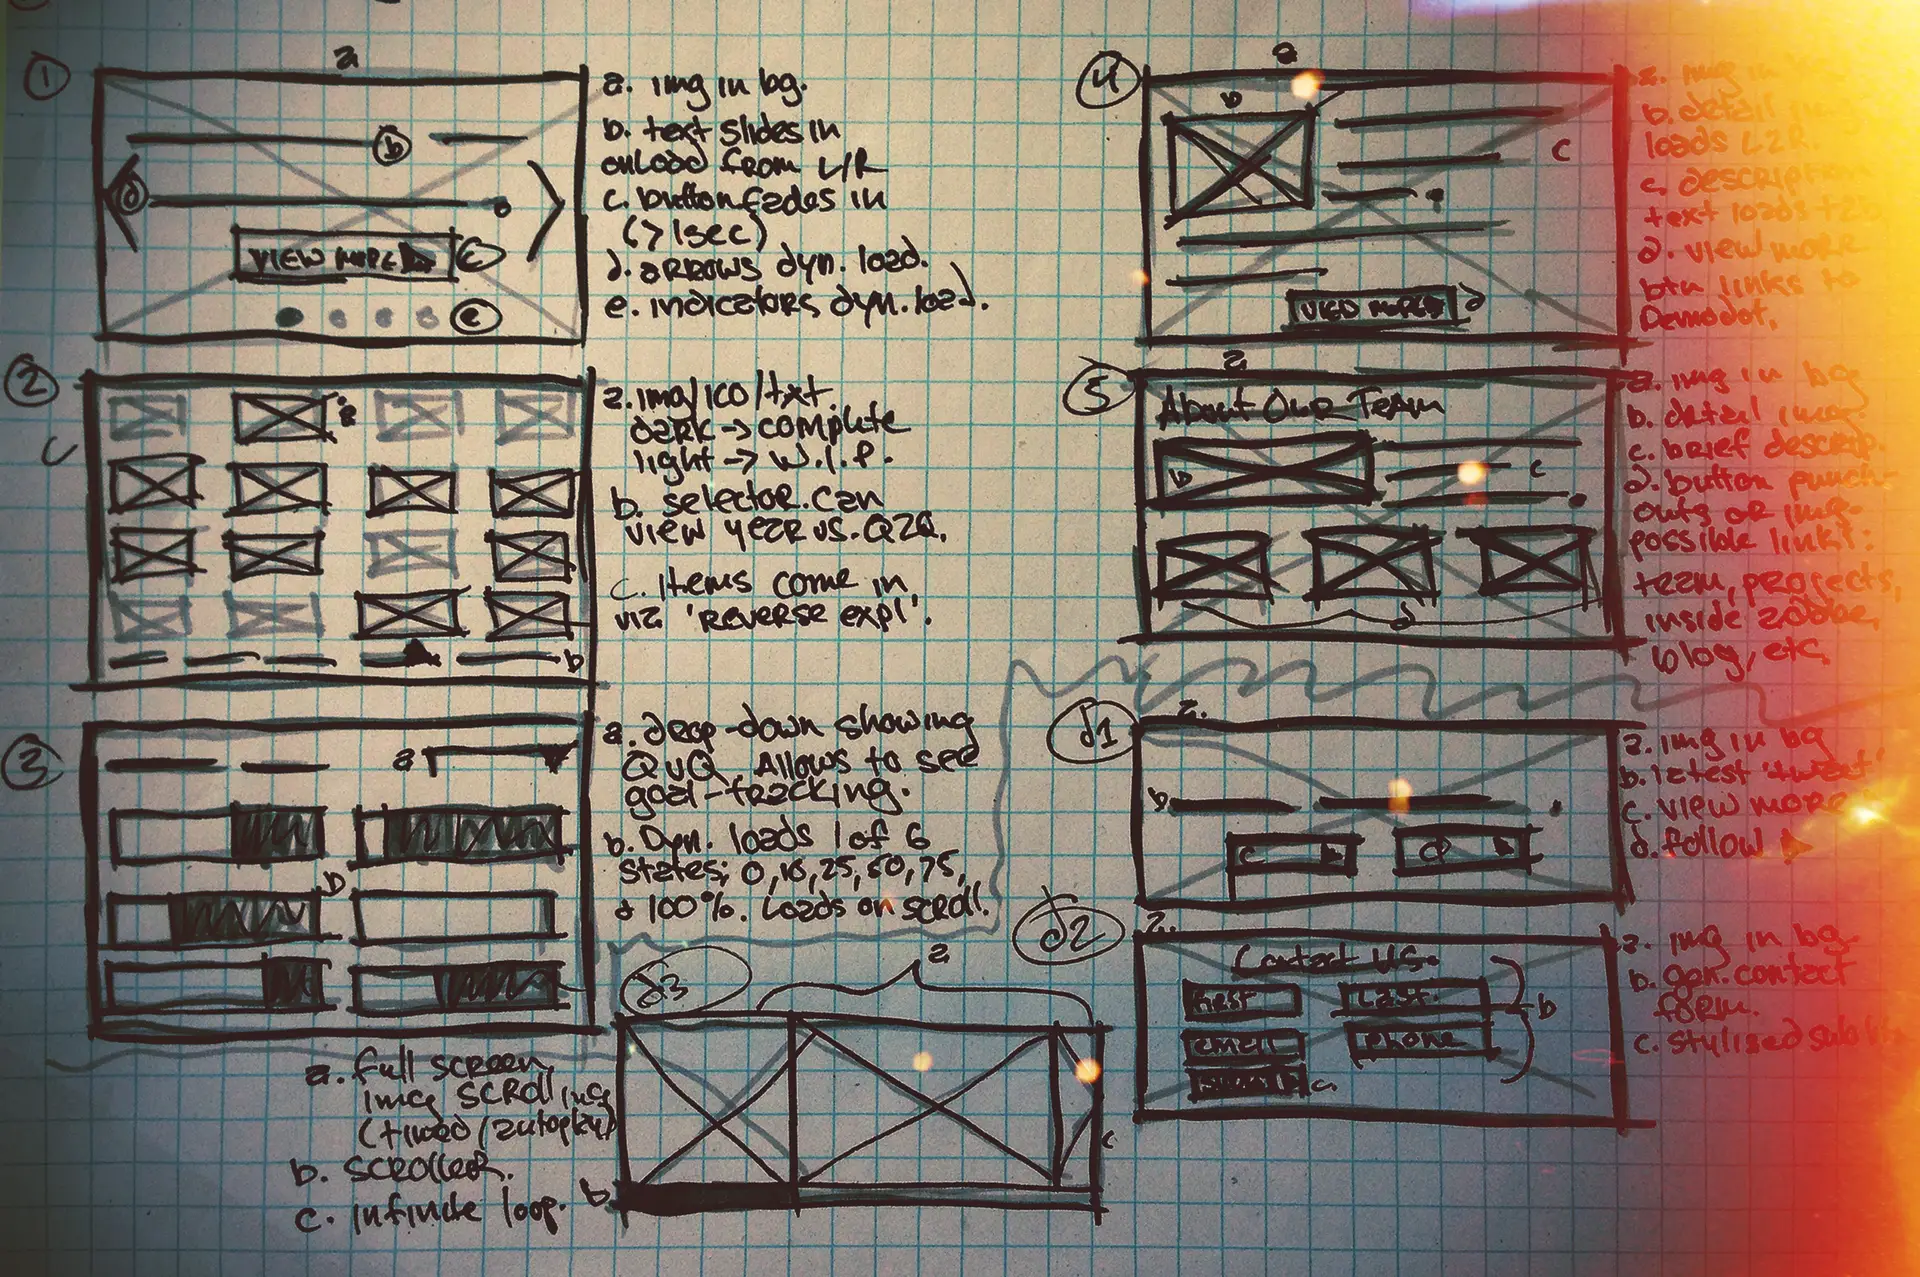 1
a
b
d
VIEW MORE
c
e
a. img in bg.
b. text slides in
onload from L/R
c. button fades in
(>1sec)
d. arrows dyn. load.
e. indicators dyn. load.
2
a
c
b
a. img/ico/txt.
dark → complete
light → W.I.P.
b. selector. can
view year vs. Q2Q.
c. items come in
via 'reverse expl'.
3
a
b
a. drop-down showing
QvQ. Allows to see
goal-tracking.
b. Dyn. loads 1 of 6
states; 0, 10, 25, 50, 75,
& 100%. Loads on scroll.
d3
a
b
c
a. full screen
img scrolling
(timed/autoplay)
b. scroller.
c. infinite loop.
4
a
b
c
VIEW MORE
d
a. img in
b. detail
loads L2R.
c. description
text loads
d. view more
btn links to
5
a
About Our Team
b
c
d
a. img in bg
b. detail img.
c. brief descrip.
d. button punch-
outs or img.
possible links:
team, projects,
inside
blog, etc.
d1
a.
b
c
d
a. img in bg
b. latest 'tweet'
c. view more
d. follow
d2
a.
Contact Us.
first
Last.
email
phone
b
c.
a. img in bg.
b. gen. contact
form.
c. stylized